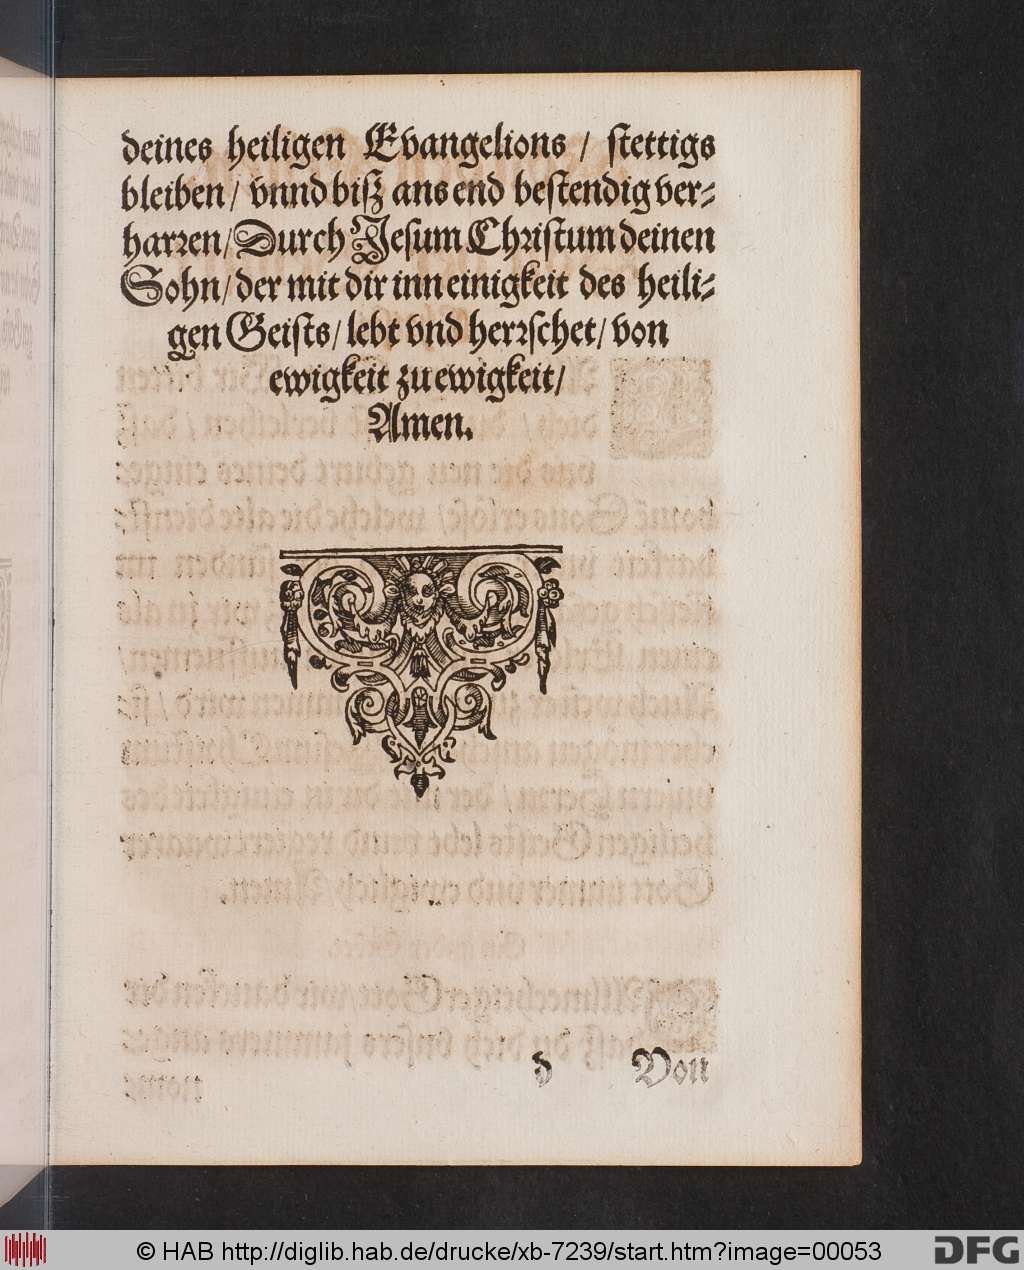 deines heiligen Evangelions / stettigs
bleiben / vnnd biß ans end bestendig ver⸗
harren / Durch Jesum Christum deinen
Sohn / der mit dir inn einigkeit des heili⸗
gen Geists / lebt vnd herrschet / von
ewigkeit zu ewigkeit /
Amen.
d Von
© HAB http://diglib.hab.de/drucke/xb-7239/start.htm?image=00053
DFG